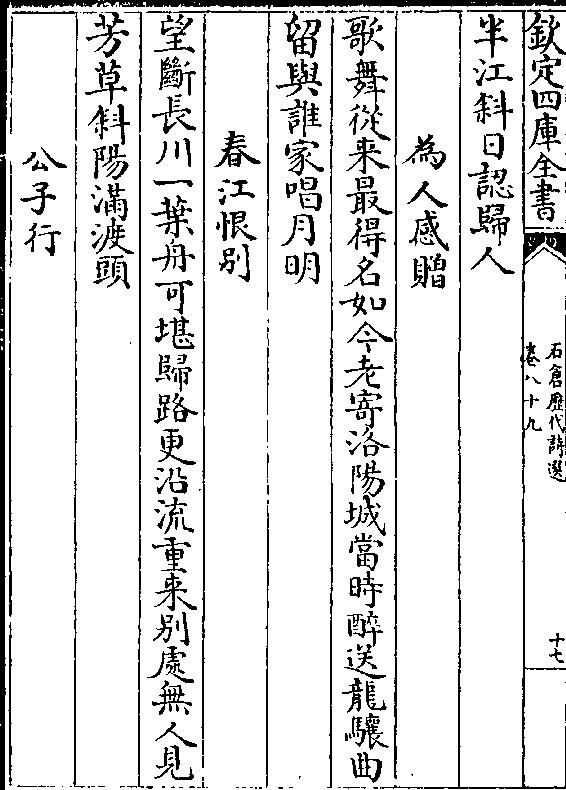 欽定四庫全書
石倉歷代詩選
卷八十九
十七
半江斜日認歸人
為人感贈
歌舞從来最得名如今老寄洛陽城當時醉送龍驤曲
留與誰家唱月明
春江恨别
望斷長川一葉舟可堪歸路更沿流重来别處無人見
芳草斜陽滿渡頭
公子行